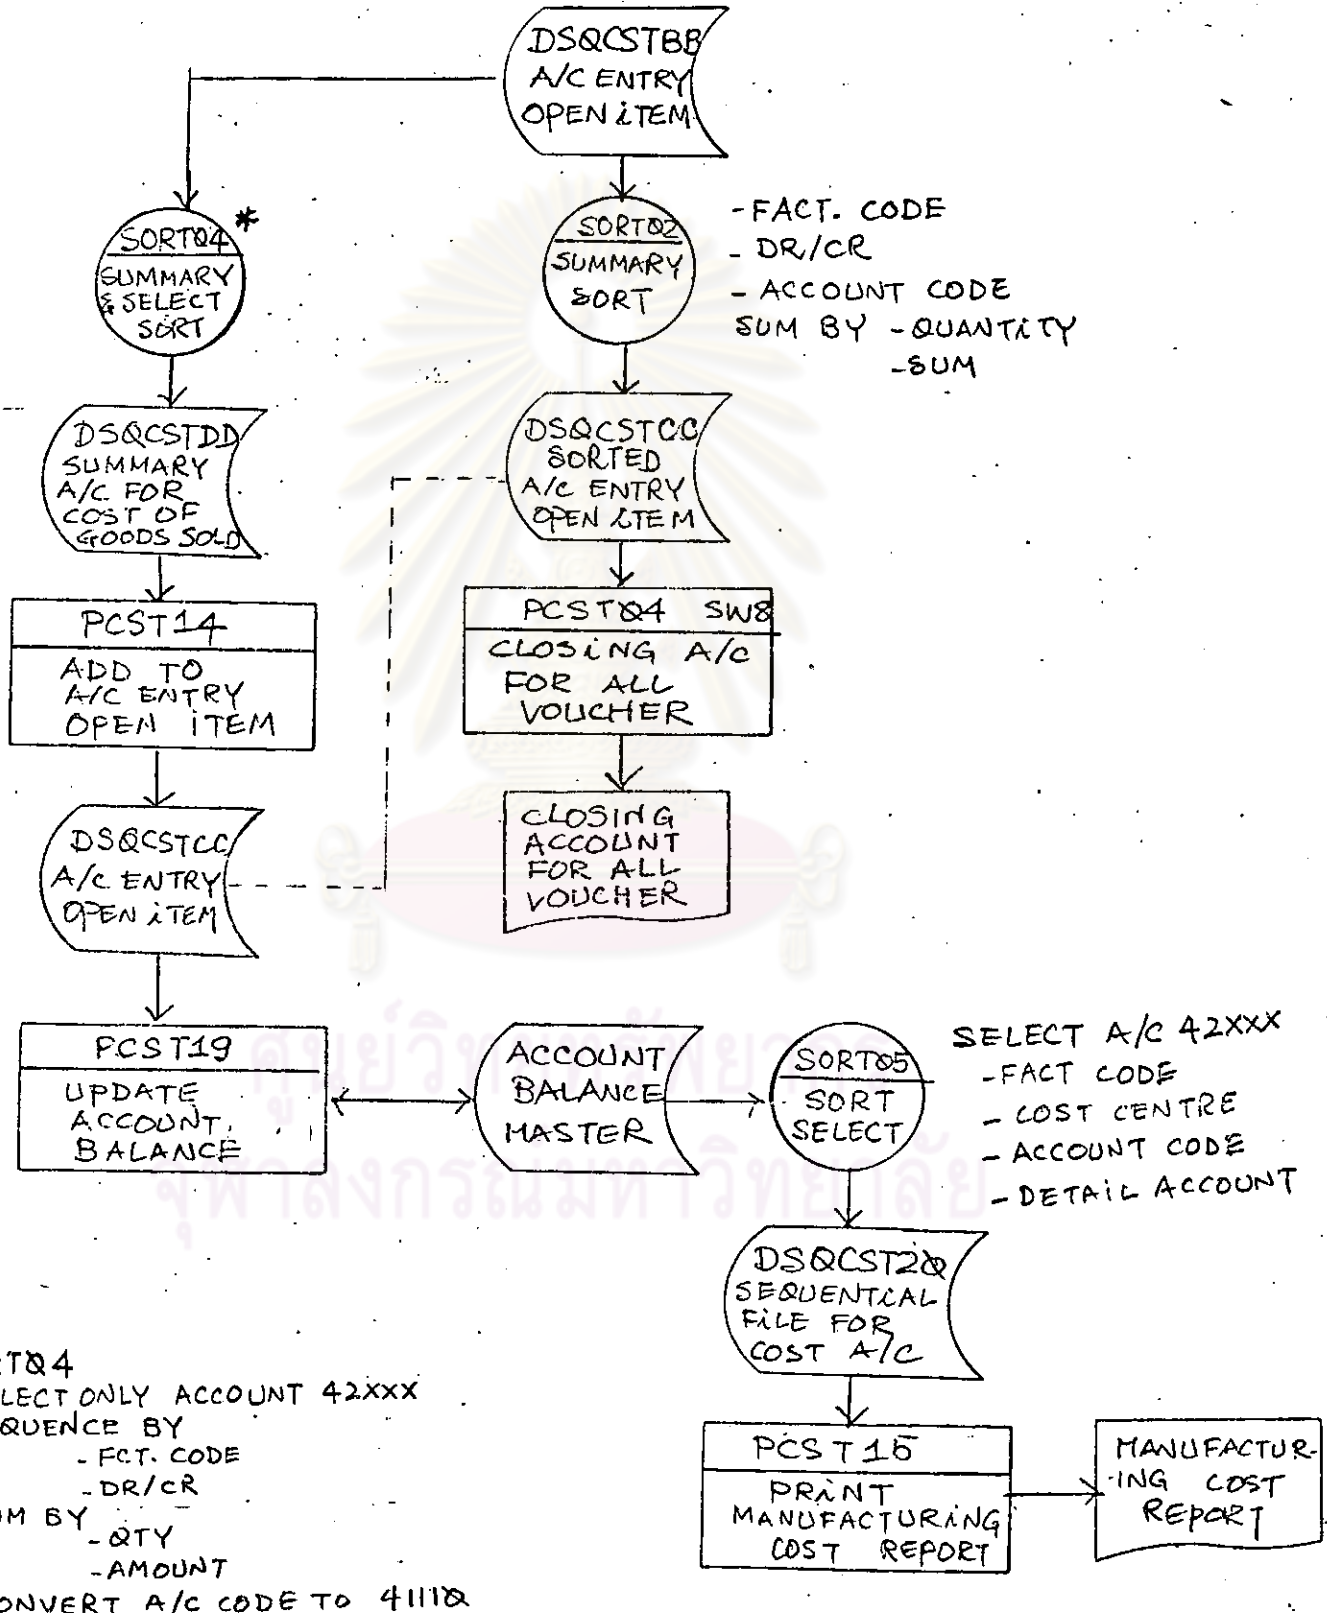 DSQCSTBB
A/C ENTRY
OPEN ITEM
SORT04 *
SUMMARY
& SELECT
SORT
SORT02
SUMMARY
SORT
- FACT. CODE
- DR/CR
- ACCOUNT CODE
SUM BY - QUANTITY
- SUM
DSQCSTDD
SUMMARY
A/C FOR
COST OF
GOODS SOLD
DSQCSTCC
SORTED
A/C ENTRY
OPEN ITEM
PCST14
ADD TO
A/C ENTRY
OPEN ITEM
PCST04 SW8
CLOSING A/C
FOR ALL
VOUCHER
DSQCSTCC
A/C ENTRY
OPEN ITEM
CLOSING
ACCOUNT
FOR ALL
VOUCHER
PCST19
UPDATE
ACCOUNT
BALANCE
ACCOUNT
BALANCE
MASTER
SORT05
SORT
SELECT
SELECT A/C 42XXX
- FACT CODE
- COST CENTRE
- ACCOUNT CODE
- DETAIL ACCOUNT
ศูนย์วิทยทรัพยากร
จุฬาลงกรณ์มหาวิทยาลัย
DSQCST20
SEQUENTIAL
FILE FOR
COST A/C
PCST15
PRINT
MANUFACTURING
COST REPORT
MANUFACTUR-
ING COST
REPORT
RT04
LECT ONLY ACCOUNT 42XXX
QUENCE BY
- FCT. CODE
- DR/CR
UM BY
- QTY
- AMOUNT
ONVERT A/C CODE TO 41110